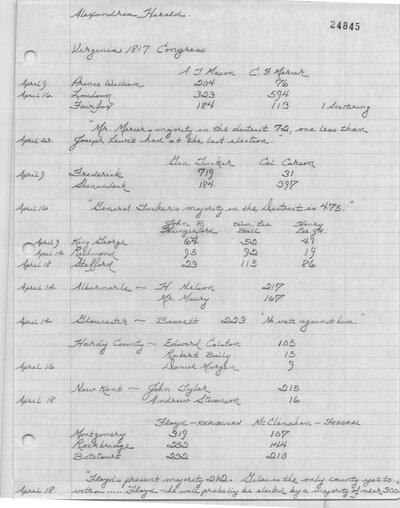 Alexandria Herald.
24845
Virginia 1817 Congress
A. T. Mason C. F. Mercer
April 9. Prince William 204 76
April 16. Loudoun 323 594
Fairfax 184 113 1 Scattering
"Mr. Mercer's majority in the district 72, one less than
April 23. Joseph Lewis had at the last election."
Gen Tucker Col. Carson
April 9 Frederick 719 31
Shenandoah 184 397
April 16 "General Tucker's majority in the District is 475."
John P. Wm. Lee Henry
Hungerford Ball Lee Jr.
April 9 King George 64 52 49
April 14 Richmond 95 92 19
April 18 Stafford 23 115 86
April 14 Albermarle — H Nelson 217
Mr. Maury 167
April 14 Gloucester — Bassett 223 "No vote against him."
Hardy County — Edward Colston 105
Robert Baily 15
April 16 Daniel Morgan 9
New Kent — John Tyler 215
April 18 Andrew Stevenson 16
Floyd — REPUBLICAN McClanahan — FEDERAL
Montgomery 319 107
Rockbridge 252 144
Botetourt 232 210
"Floyd's present majority 212. Giles is the only county yet to
April 18 vote ...... Floyd she will probably be elected by a majority of near 300